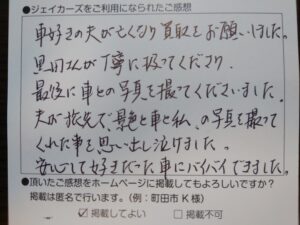 ●ジェイカーズをご利用になられたご感想
車好きの夫が亡くなり買取をお願いしました。
黒田さんが丁寧に扱ってくださり、
最後に車との写真を撮ってくださいました。
夫が旅先で、景色と車と私、の写真を撮って
くれた事を思い出し泣けました。
安心して好きだった車にバイバイできました。
●頂いたご感想をホームページに掲載してもよろしいですか?
掲載は匿名で行います。(例:町田市K様)
☑掲載してよい □掲載不可